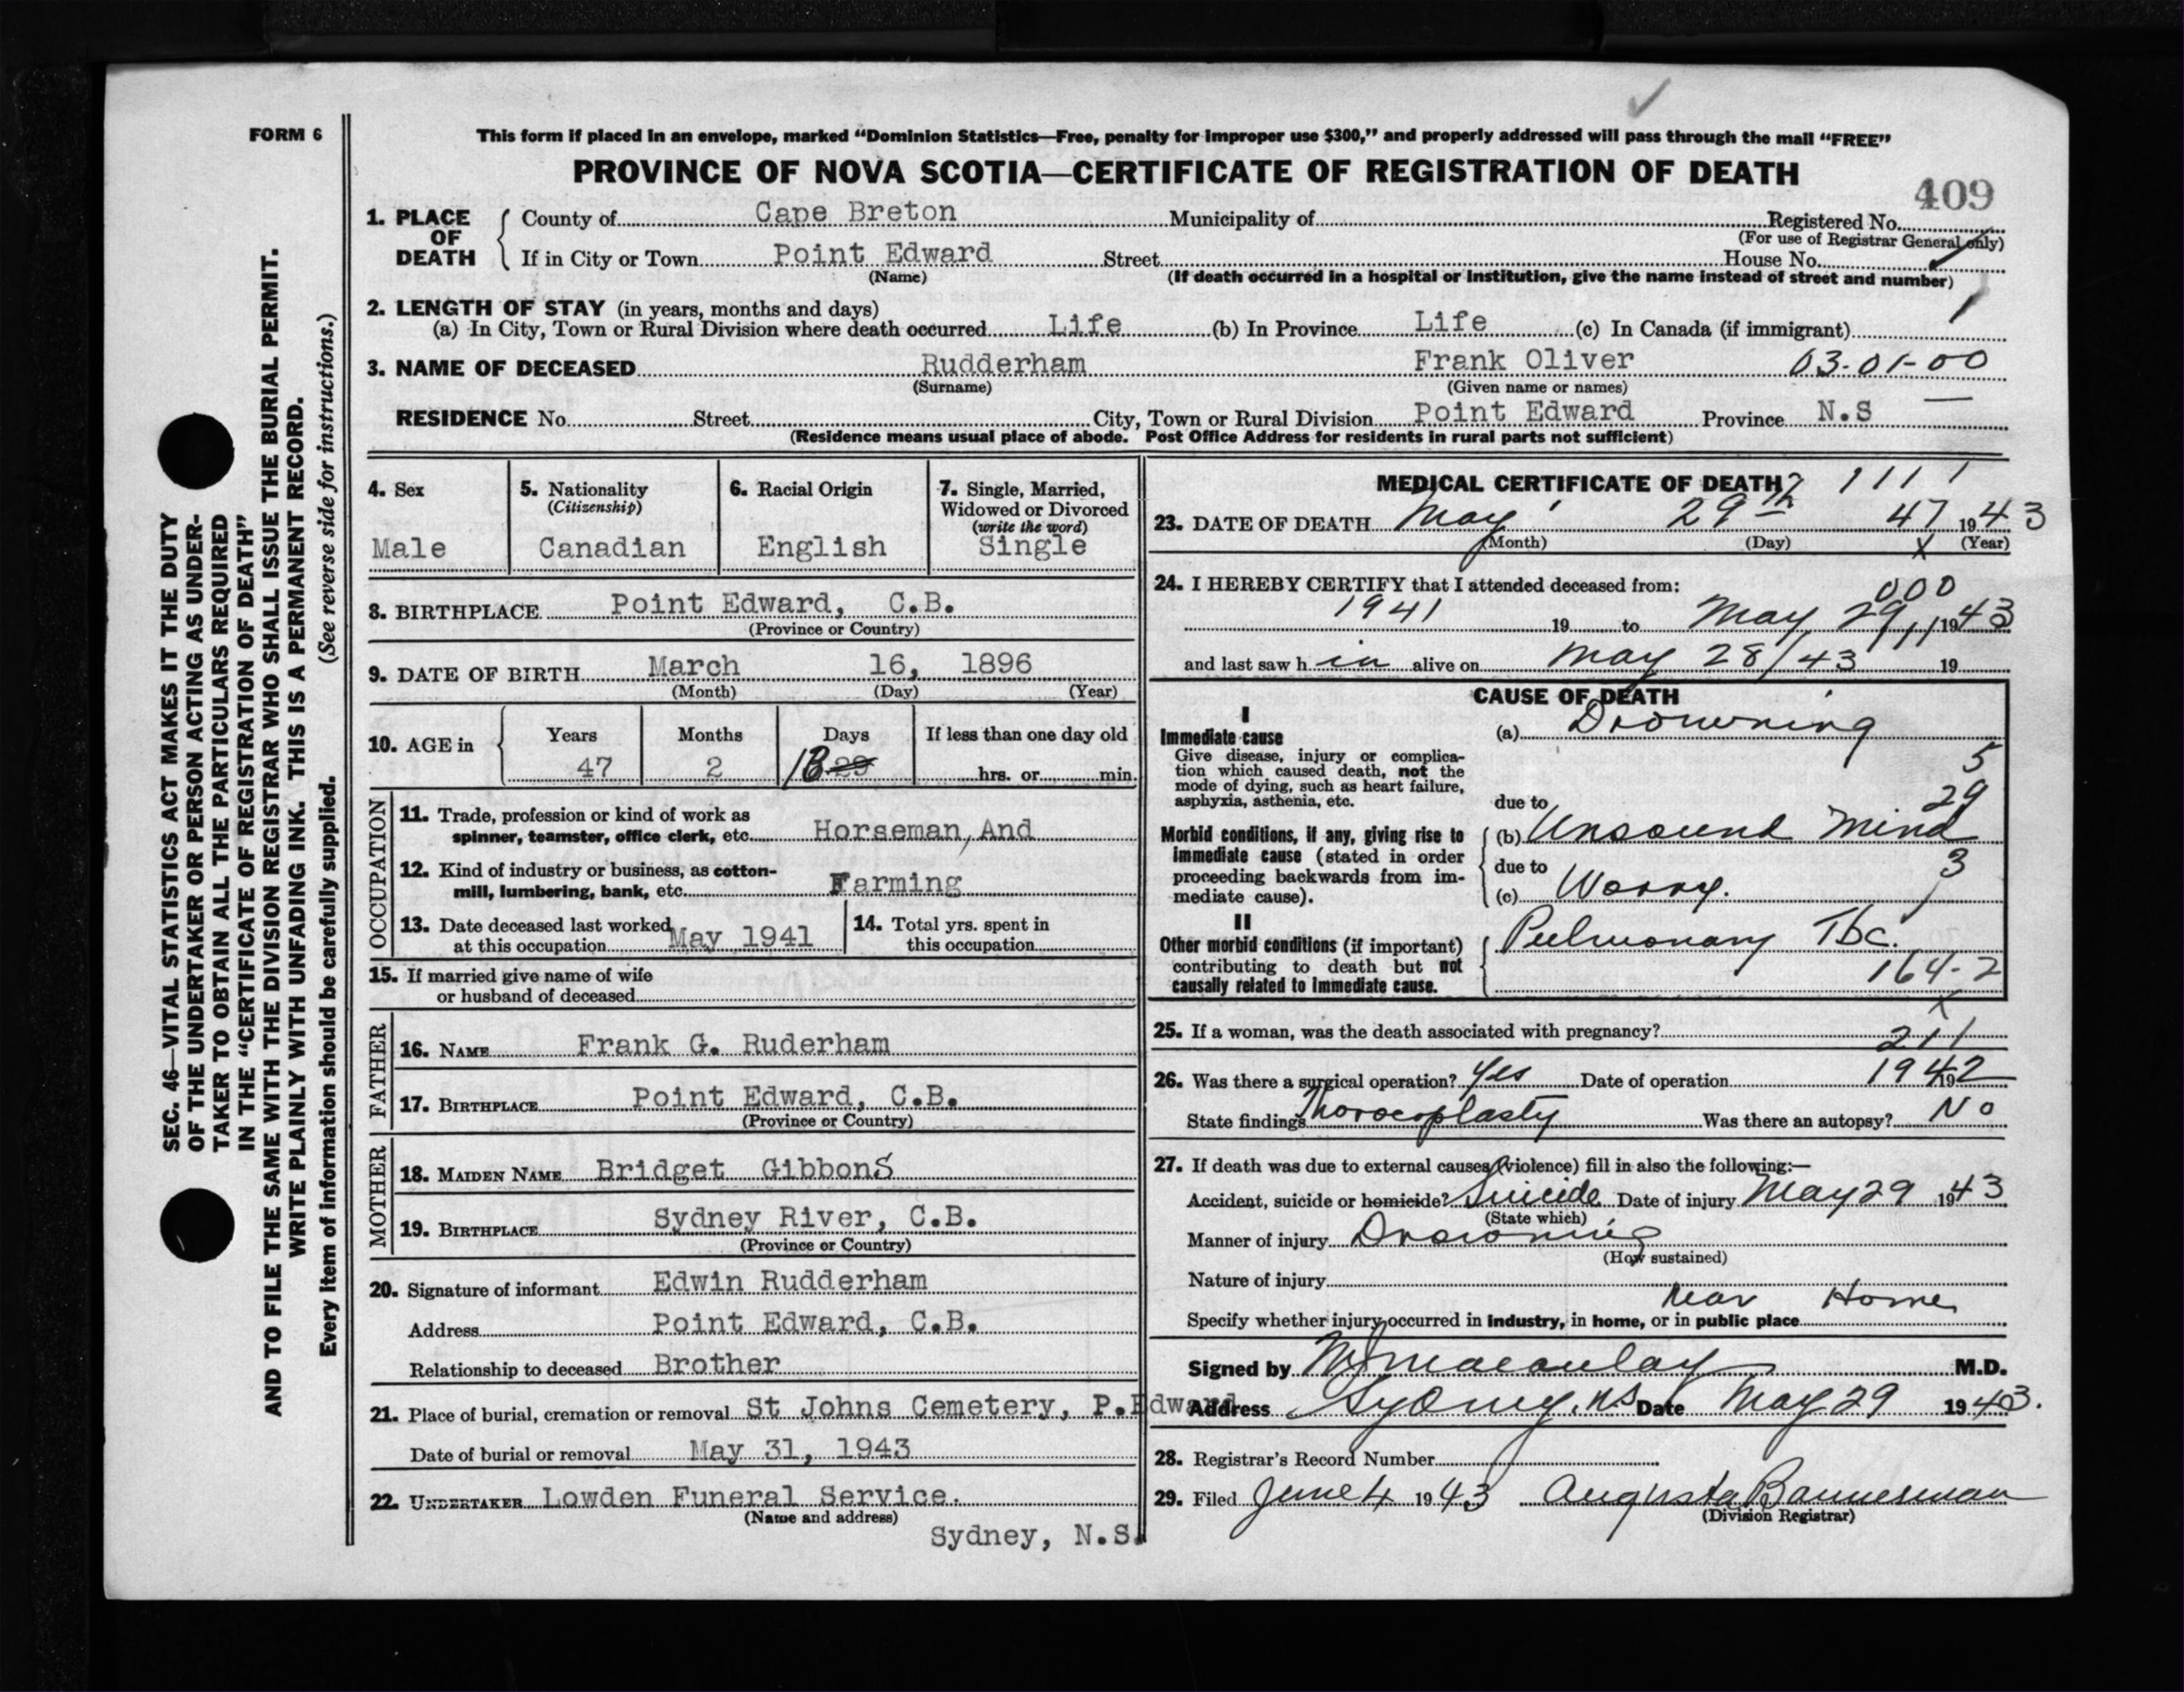 FORM 6
This form if placed in an envelope, marked “Dominion Statistics—Free, penalty for improper use $300,” and properly addressed will pass through the mail “FREE”
PROVINCE OF NOVA SCOTIA—CERTIFICATE OF REGISTRATION OF DEATH
409
1. PLACE OF DEATH
County of Cape Breton Municipality of Registered No.
(For use of Registrar General only)
If in City or Town Point Edward Street House No.
(Name) (If death occurred in a hospital or institution, give the name instead of street and number)
2. LENGTH OF STAY (in years, months and days)
(a) In City, Town or Rural Division where death occurred Life (b) In Province Life (c) In Canada (if immigrant)
3. NAME OF DECEASED Rudderham Frank Oliver 03-01-00
(Surname) (Given name or names)
RESIDENCE No. Street City, Town or Rural Division Point Edward Province N.S
(Residence means usual place of abode. Post Office Address for residents in rural parts not sufficient)
4. Sex
Male
5. Nationality
(Citizenship)
Canadian
6. Racial Origin
English
7. Single, Married,
Widowed or Divorced
(write the word)
Single
8. BIRTHPLACE Point Edward, C.B.
(Province or Country)
9. DATE OF BIRTH March 16, 1896
(Month) (Day) (Year)
10. AGE in
Years Months Days If less than one day old
47 2 13 29 hrs. or min.
OCCUPATION
11. Trade, profession or kind of work as
spinner, teamster, office clerk, etc. Horseman, And
12. Kind of industry or business, as cotton-
mill, lumbering, bank, etc. Farming
13. Date deceased last worked
at this occupation May 1941
14. Total yrs. spent in
this occupation
15. If married give name of wife
or husband of deceased
FATHER
16. NAME Frank G. Ruderham
17. BIRTHPLACE Point Edward, C.B.
(Province or Country)
MOTHER
18. MAIDEN NAME Bridget GibbonS
19. BIRTHPLACE Sydney River, C.B.
(Province or Country)
20. Signature of informant Edwin Rudderham
Address Point Edward, C.B.
Relationship to deceased Brother
21. Place of burial, cremation or removal St Johns Cemetery, P.Edward
Date of burial or removal May 31, 1943
22. UNDERTAKER Lowden Funeral Service.
(Name and address)
Sydney, N.S.
MEDICAL CERTIFICATE OF DEATH
1 1 1 1
23. DATE OF DEATH May 29th 47 1943
(Month) (Day) X (Year)
24. I HEREBY CERTIFY that I attended deceased from:
000
1941 19 to May 29, 1943
and last saw h im alive on May 28/43 19
CAUSE OF DEATH
I
Immediate cause
Give disease, injury or complica-
tion which caused death, not the
mode of dying, such as heart failure,
asphyxia, asthenia, etc.
(a) Drowning
5
29
due to
Morbid conditions, if any, giving rise to
immediate cause (stated in order
proceeding backwards from im-
mediate cause).
(b) Unsound Mind
due to 3
(c) Worry.
II
Other morbid conditions (if important)
contributing to death but not
causally related to immediate cause.
Pulmonary Tbc.
164-2
X
25. If a woman, was the death associated with pregnancy? 211
26. Was there a surgical operation? Yes Date of operation 1942
State findings Thorocoplasty Was there an autopsy? No
27. If death was due to external causes (violence) fill in also the following:—
Accident, suicide or homicide? Suicide Date of injury May 29 1943
(State which)
Manner of injury Drowning
(How sustained)
Nature of injury
near Home
Specify whether injury occurred in industry, in home, or in public place
Signed by Macaulay M.D.
Address Sydney, N.S Date May 29 1943.
28. Registrar's Record Number
29. Filed June 4 1943 Augusta Bannerman
(Division Registrar)
SEC. 46—VITAL STATISTICS ACT MAKES IT THE DUTY
OF THE UNDERTAKER OR PERSON ACTING AS UNDER-
TAKER TO OBTAIN ALL THE PARTICULARS REQUIRED
IN THE “CERTIFICATE OF REGISTRATION OF DEATH”
AND TO FILE THE SAME WITH THE DIVISION REGISTRAR WHO SHALL ISSUE THE BURIAL PERMIT.
WRITE PLAINLY WITH UNFADING INK. THIS IS A PERMANENT RECORD.
Every item of information should be carefully supplied. (See reverse side for instructions.)